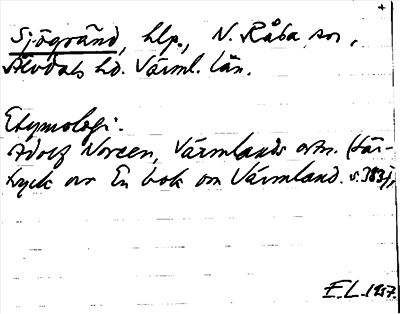 Sjögränd, hlp., N. Råda sn,
Älvdals hd. Värml. län.
Etymologi.
Adolf Noreen, Värmlands ortn. (Sär-
tryck av En bok om Värmland. s. 383),
E.L. 1957.